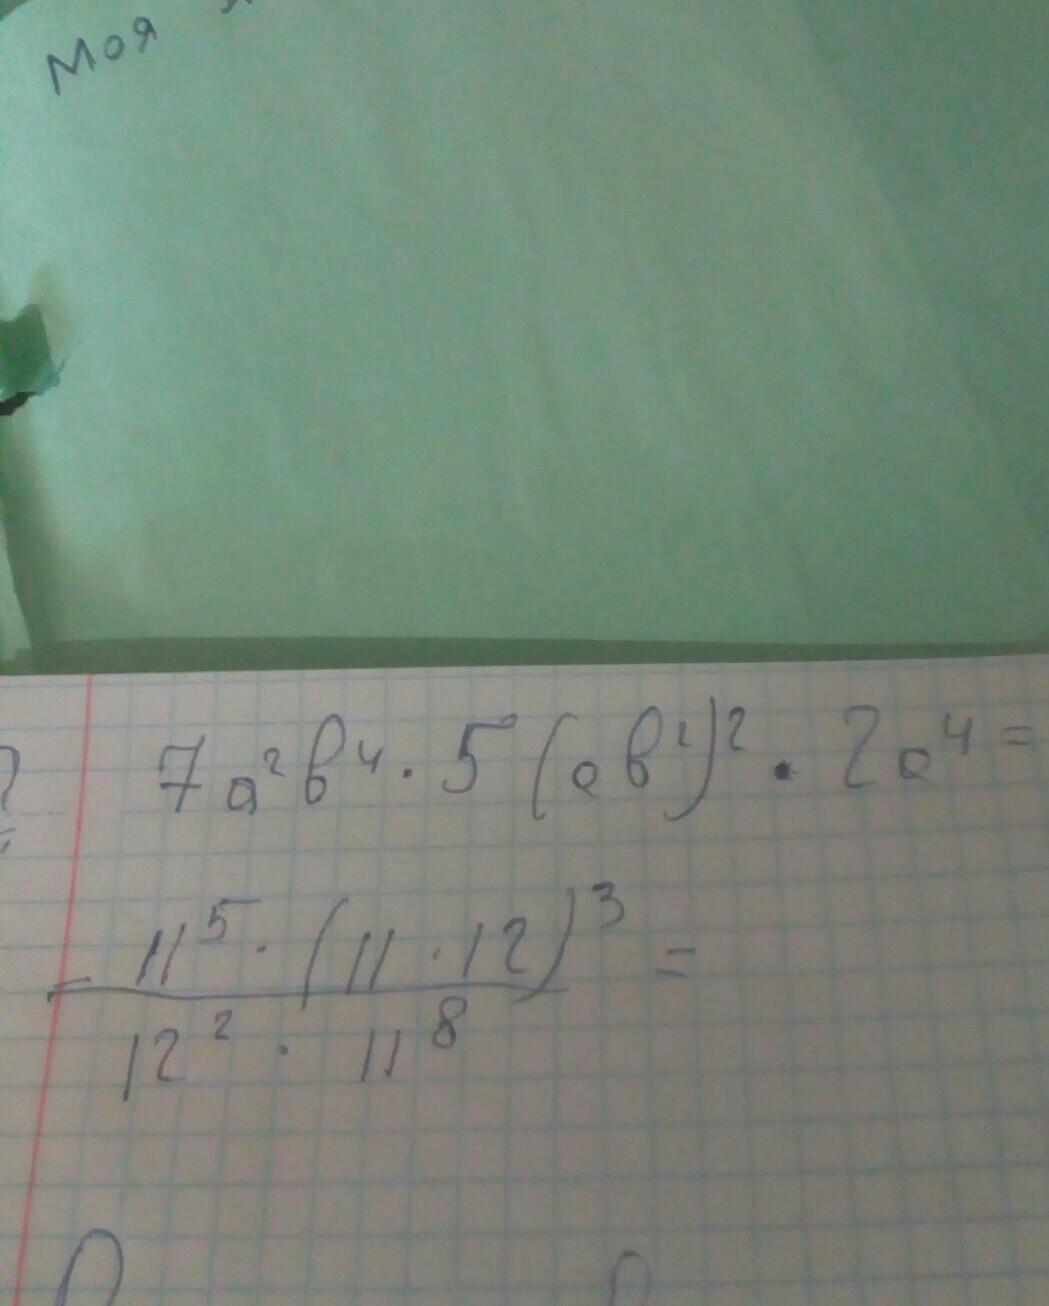 Моя
7a²b⁴ · 5(ab²)² · 2a⁴ =
- 11⁵ · (11 · 12)³ =
12² · 11⁸